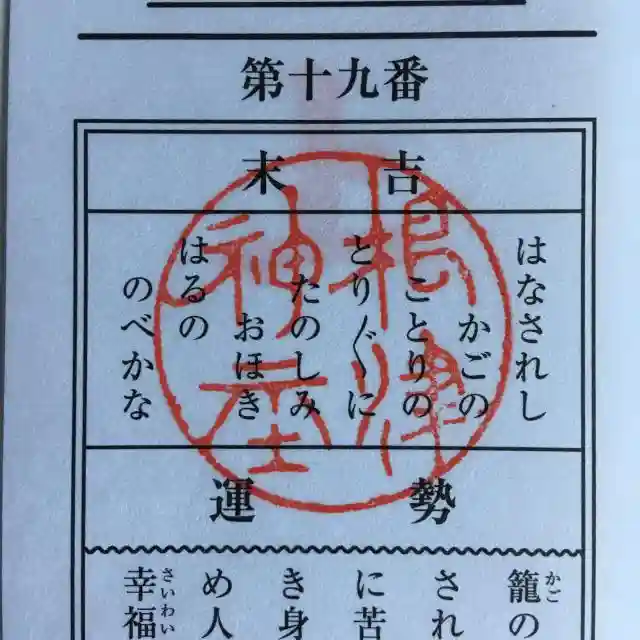 第十九番
末吉
はなされし
かごの
ことりの
とり〴〵に
たのしみ
おほき
はるの
のべかな
根津神社
運勢
籠の
かご
され
に苦
き身
め人
幸福
さいわい